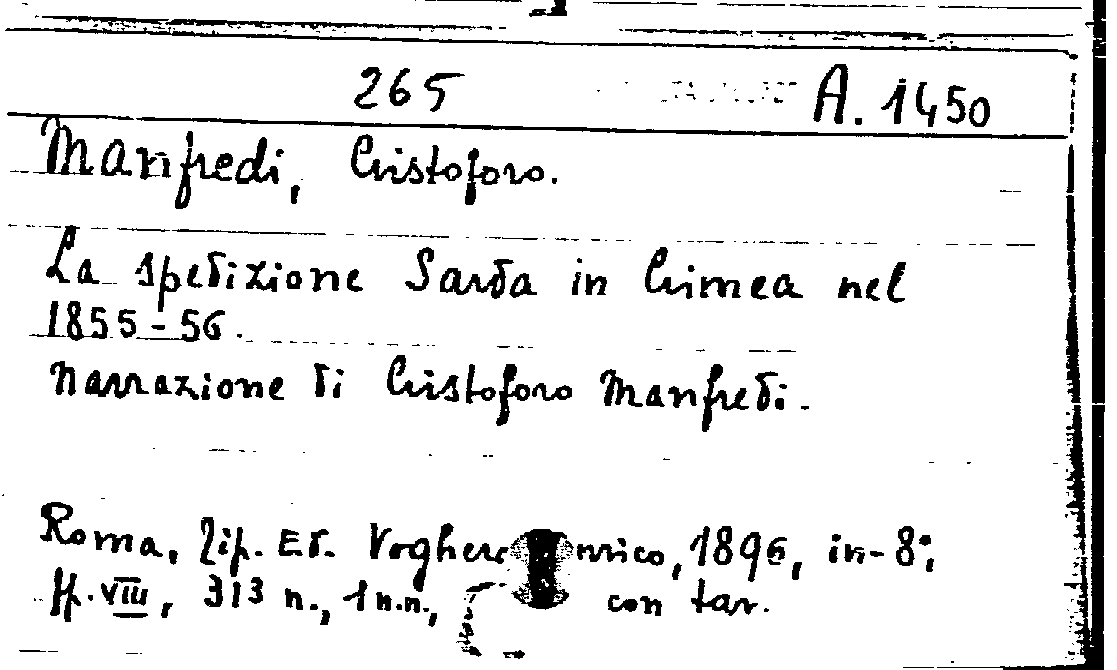 265 A. 1450
Manfredi, Cristoforo.
La spedizione Sarda in Crimea nel
1855-56.
Narrazione di Cristoforo Manfredi.
Roma, Tip. Ed. Voghera Enrico, 1896, in-8°,
pp. VIII, 313 n., 1 n.n., con tav.